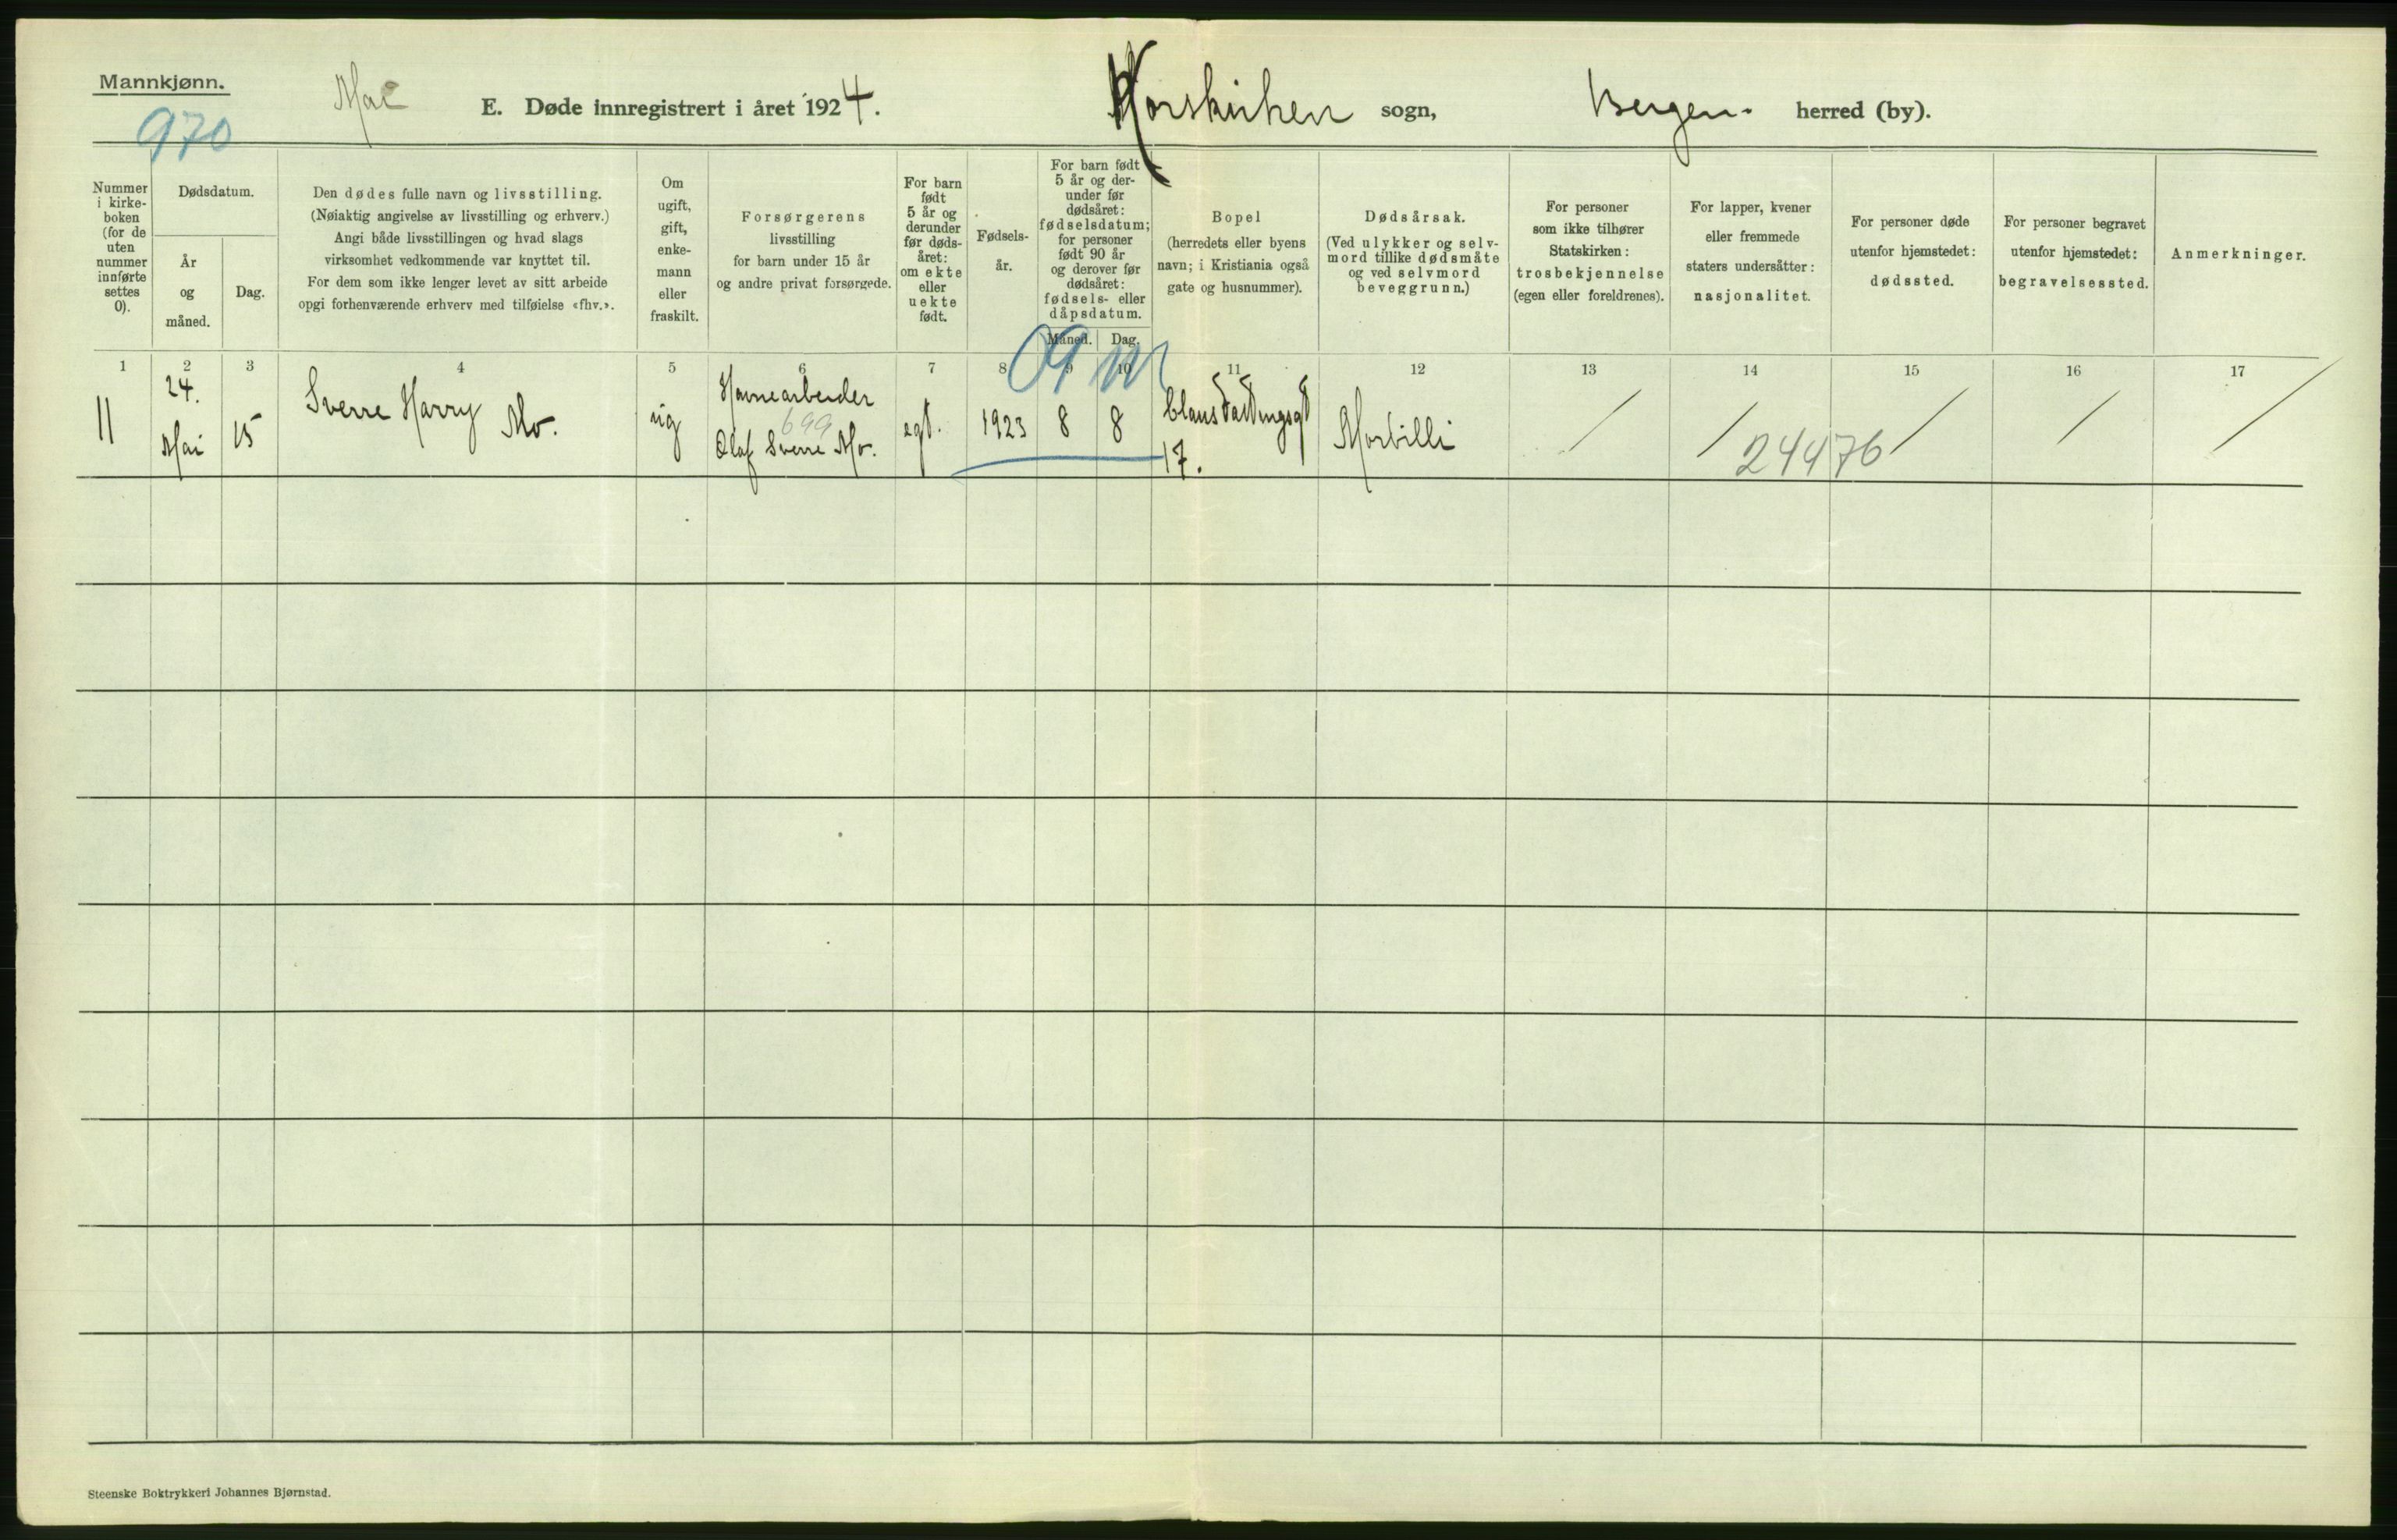 Mannkjønn.
970
Mai
E. Døde innregistrert i året 1924.
Korskirken sogn,
Bergen. herred (by).
Nummer
i kirke-
boken
(for de
uten
nummer
innførte
settes
0).
Dødsdatum.
År
og
måned.
Dag.
Den dødes fulle navn og livsstilling.
(Nøiaktig angivelse av livsstilling og erhverv.)
Angi både livsstillingen og hvad slags
virksomhet vedkommende var knyttet til.
For dem som ikke lenger levet av sitt arbeide
opgi forhenværende erhverv med tilføielse «fhv.».
Om
ugift,
gift,
enke-
mann
eller
fraskilt.
Forsørgerens
livsstilling
for barn under 15 år
og andre privat forsørgede.
For barn
født
5 år og
derunder
før døds-
året:
om ekte
eller
uekte
født.
Fødsels-
år.
For barn født
5 år og der-
under før
dødsåret:
fødselsdatum;
for personer
født 90 år
og derover før
dødsåret:
fødsels- eller
dåpsdatum.
Måned. Dag.
Bopel
(herredets eller byens
navn; i Kristiania også
gate og husnummer).
Dødsårsak.
(Ved ulykker og selv-
mord tillike dødsmåte
og ved selvmord
beveggrunn.)
For personer
som ikke tilhører
Statskirken:
trosbekjennelse
(egen eller foreldrenes).
For lapper, kvener
eller fremmede
staters undersåtter:
nasjonalitet.
For personer døde
utenfor hjemstedet:
dødssted.
For personer begravet
utenfor hjemstedet:
begravelsessted.
Anmerkninger.
1 2 3 4 5 6 7 8 9 10 11 12 13 14 15 16 17
09 m
11
24.
Mai
15
Sverre Harry Mo.
ug
Havnearbeider
699
Olaf Sverre Mo.
egt.
1923
8
8
Claus Fastingsgt
17.
Morbilli
/ / / / /
24476
Steenske Boktrykkeri Johannes Bjørnstad.